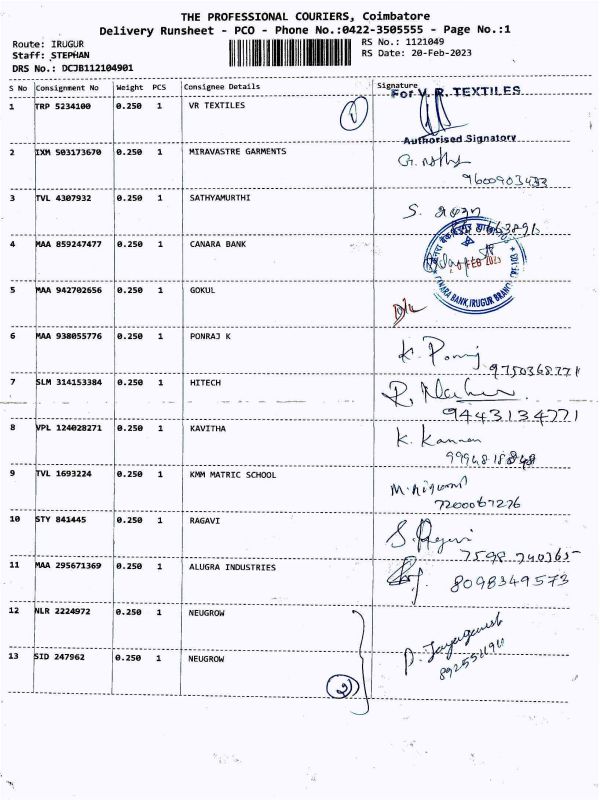 THE PROFESSIONAL COURIERS, Coimbatore
Delivery Runsheet - PCO - Phone No.:0422-3505555 - Page No.:1
Route: IRUGUR
Staff: STEPHAN
DRS No.: DCJB112104901
RS No.: 1121049
RS Date: 20-Feb-2023
S No Consignment No Weight PCS Consignee Details Signature
For V. R. TEXTILES
1 TRP 5234100 0.250 1 VR TEXTILES 1
Authorised Signatory
2 IXM 503173670 0.250 1 MIRAVASTRE GARMENTS
9600903433
3 TVL 4307932 0.250 1 SATHYAMURTHI S.
4 MAA 859247477 0.250 1 CANARA BANK
FEB 2023
CANARA BANK, IRUGUR BRANCH
5 MAA 942702656 0.250 1 GOKUL D/L
6 MAA 938055776 0.250 1 PONRAJ K K. Ponraj
9750368771
7 SLM 314153384 0.250 1 HITECH
9443134771
8 VPL 124028271 0.250 1 KAVITHA K. Kannan
9994818848
9 TVL 1693224 0.250 1 KMM MATRIC SCHOOL
7200067276
10 STY 841445 0.250 1 RAGAVI
7598 740365
11 MAA 295671369 0.250 1 ALUGRA INDUSTRIES
8098349573
12 NLR 2224972 0.250 1 NEUGROW
P. Jayaganesh
13 SID 247962 0.250 1 NEUGROW
2